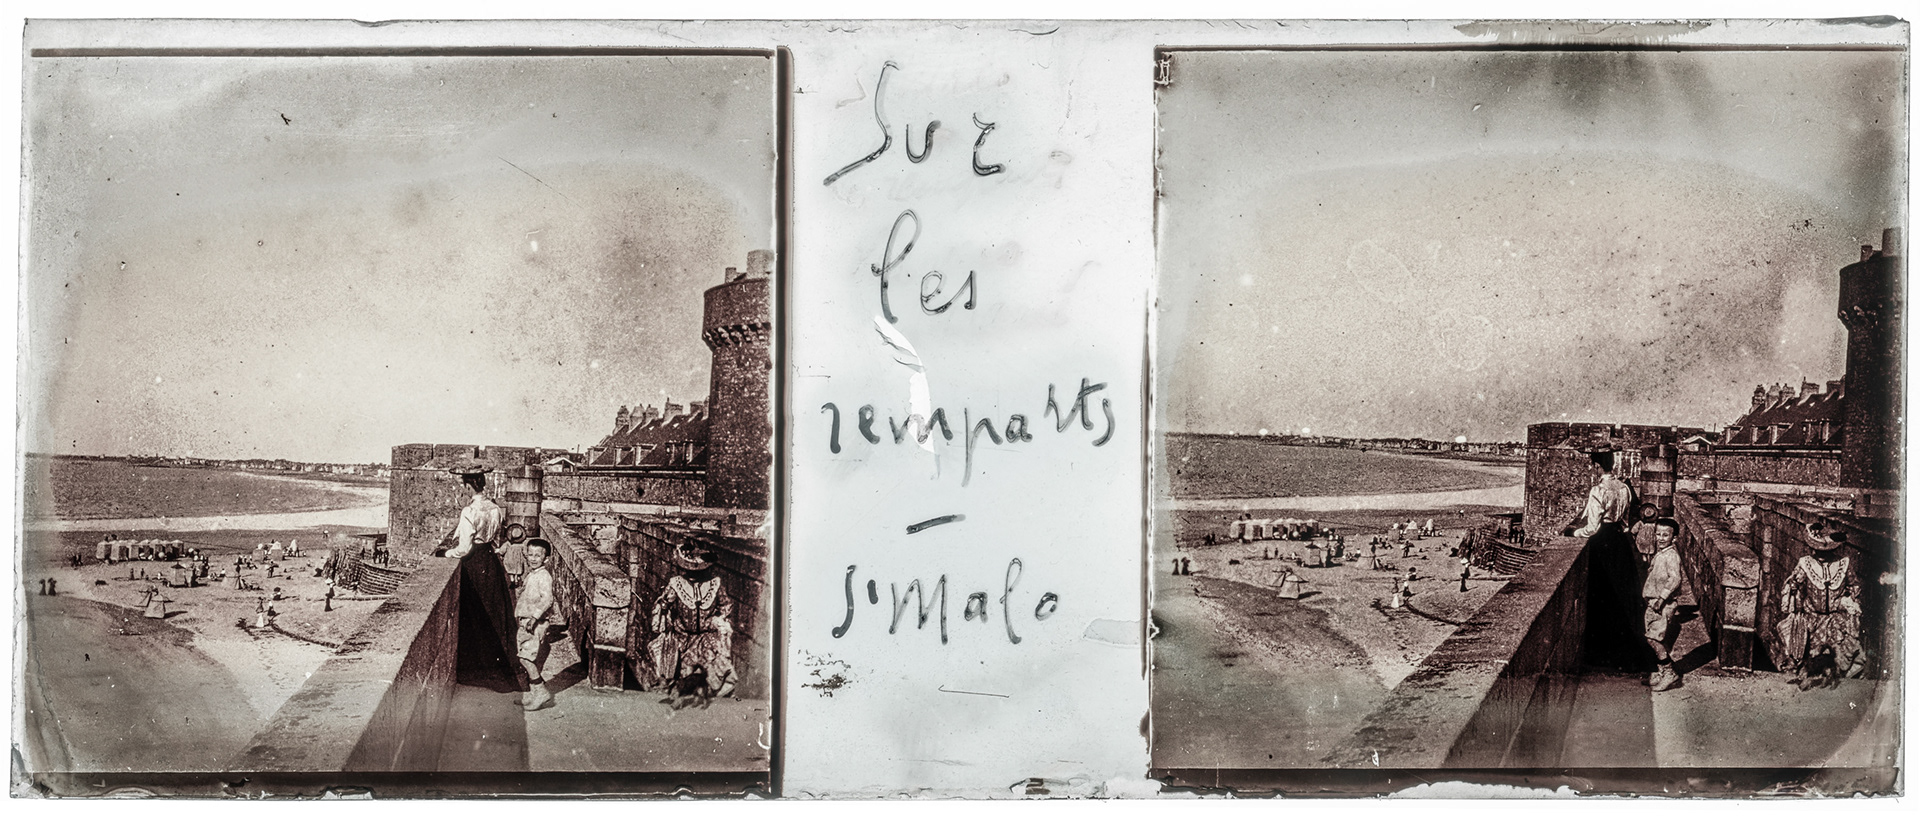 Sur
les
remparts
—
St Malo